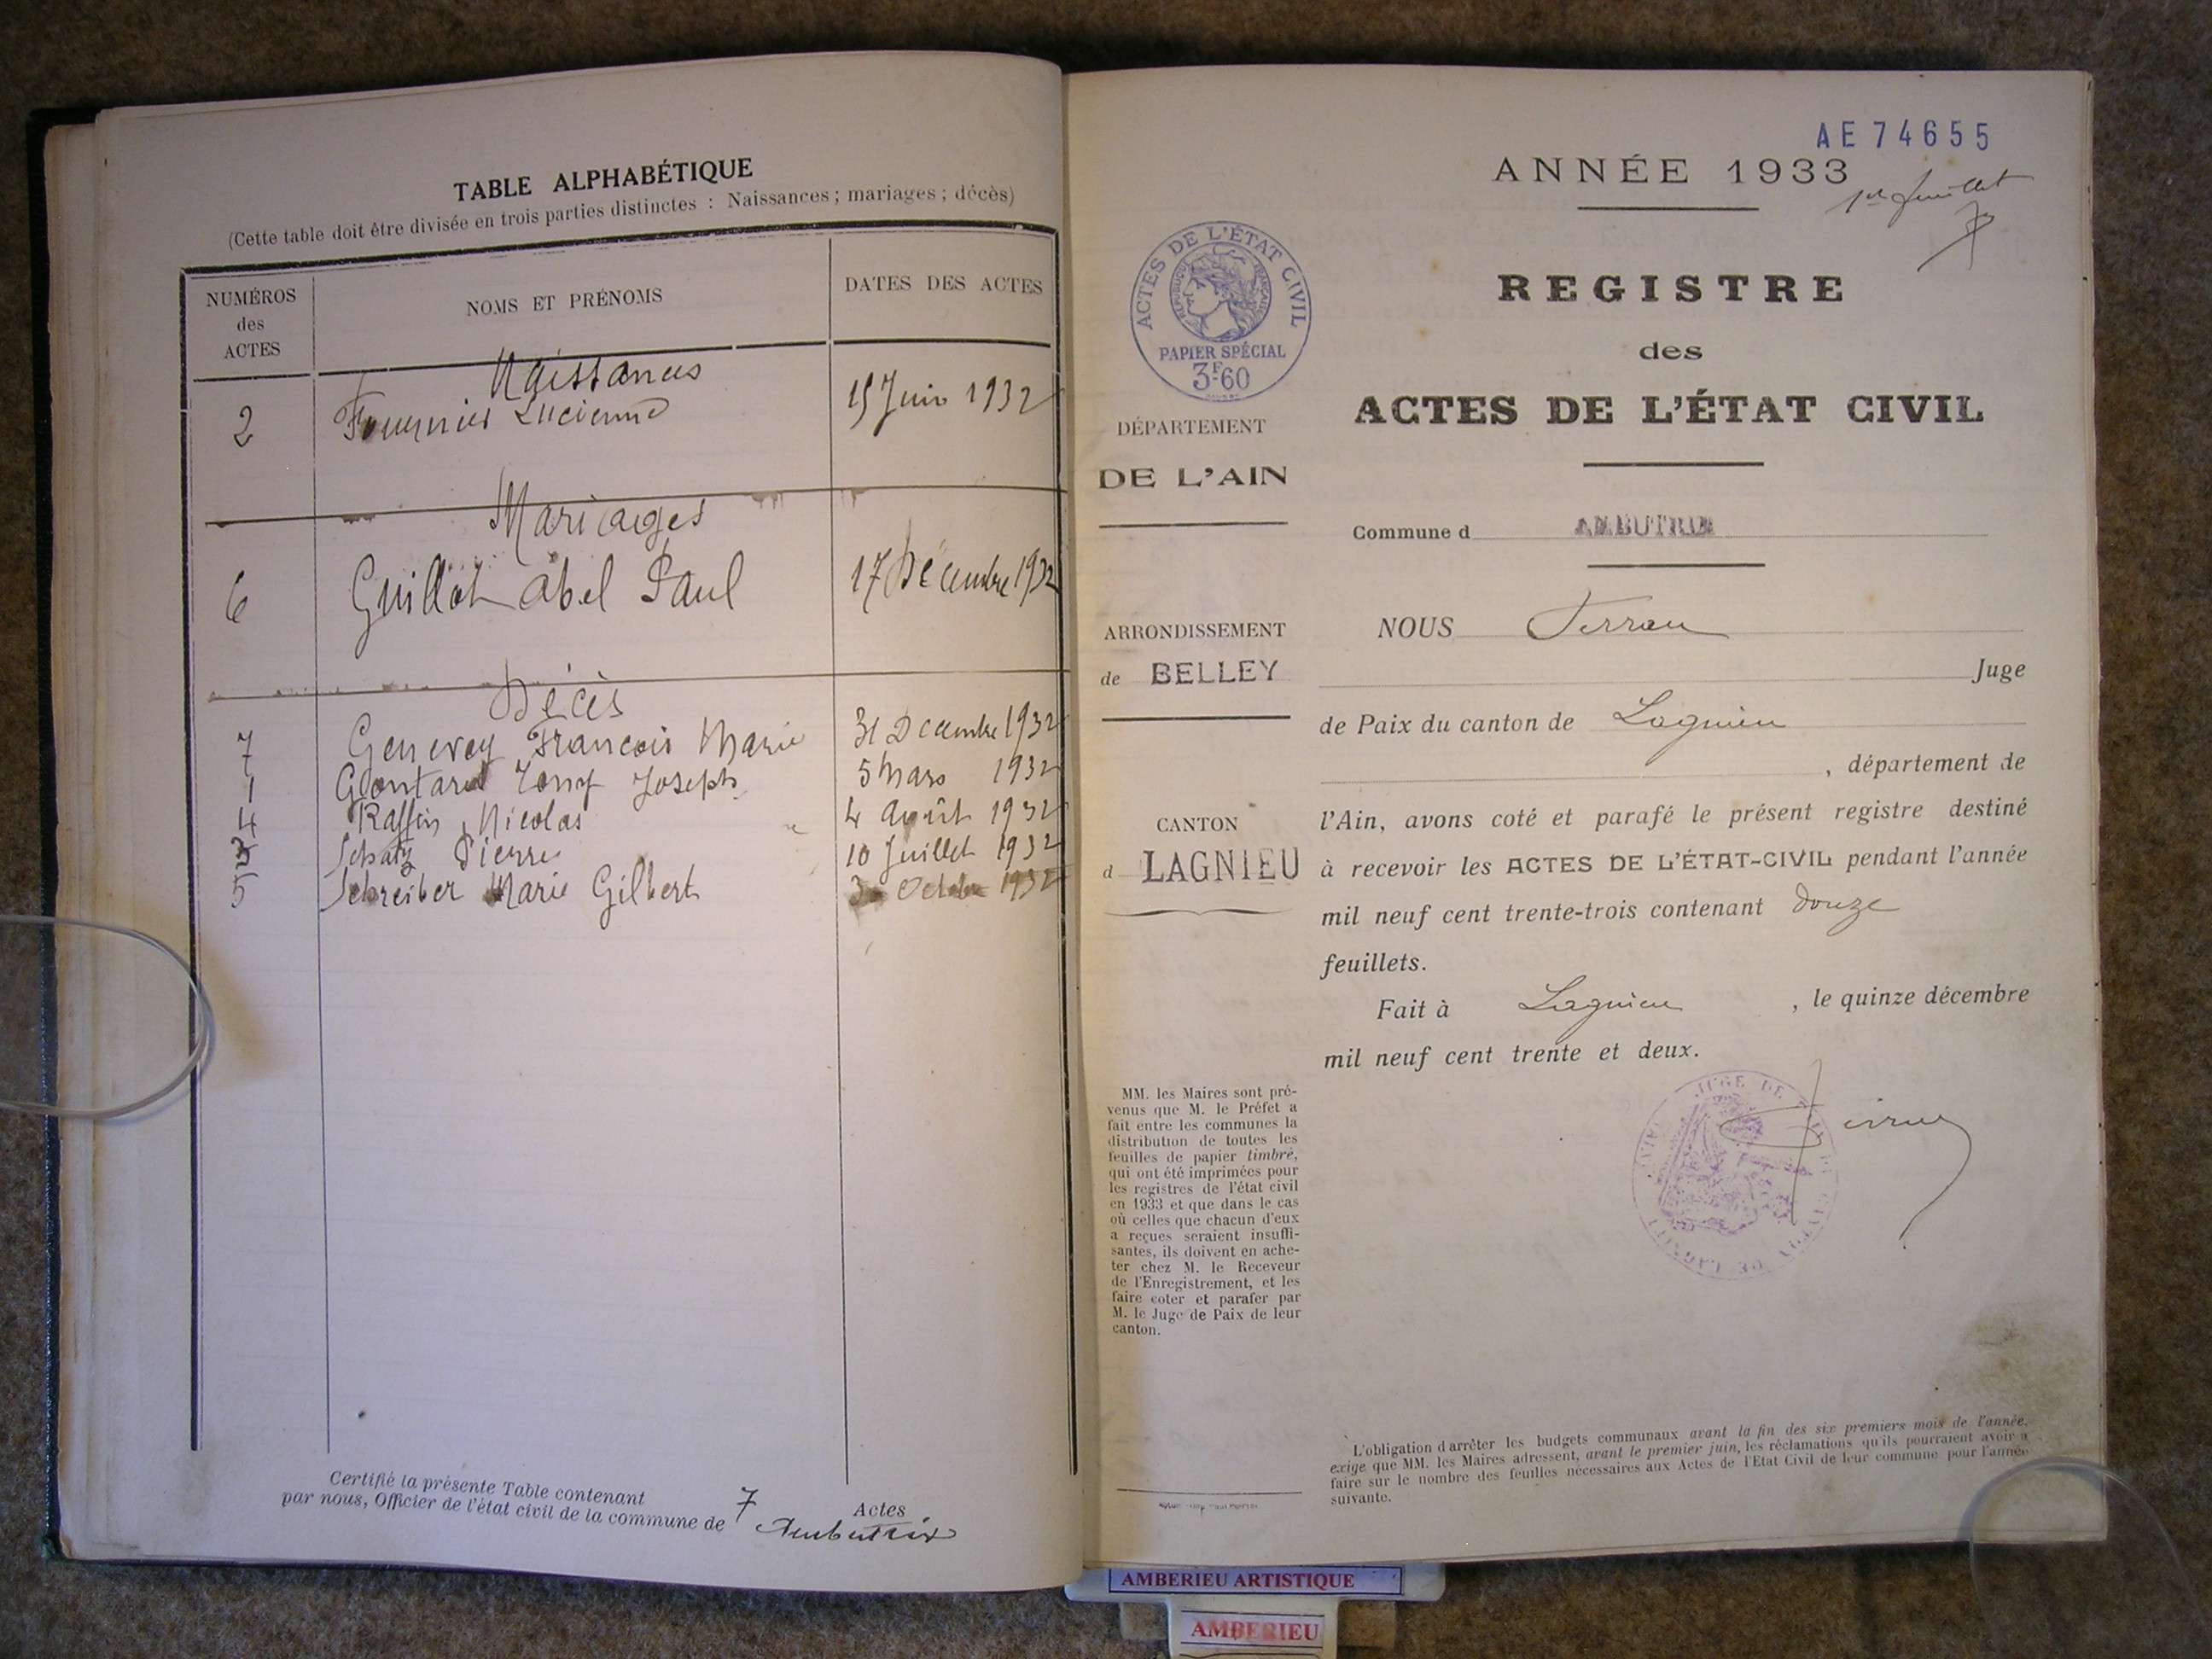 TABLE ALPHABÉTIQUE
(Cette table doit être divisée en trois parties distinctes : Naissances ; mariages ; décès)
NUMÉROS
des
ACTES
NOMS ET PRÉNOMS
DATES DES ACTES
Naissances
2 Fournier Lucienne 15 Juin 1932
Mariages
6 Guillot Abel Paul 17 Décembre 1932
Décès
7 Genevey Francois Marie 31 Decembre 1932
1 Gontard Tony Joseph 5 Mars 1932
4 Raffin Nicolas 4 Août 1932
3 Schatz Pierre 10 Juillet 1932
5 Schreiber Marie Gilbert Octobre 1932
Certifié la présente Table contenant 7 Actes
par nous, Officier de l'état civil de la commune de Ambutrix
AE 74655
ANNÉE 1933
1er Juillet
REGISTRE
des
ACTES DE L'ÉTAT CIVIL
ACTES DE L'ÉTAT CIVIL
RÉPUBLIQUE FRANÇAISE
PAPIER SPÉCIAL
3F60
DÉPARTEMENT
DE L'AIN
Commune d AMBUTRIX
ARRONDISSEMENT
de BELLEY
CANTON
d LAGNIEU
NOUS
Juge
de Paix du canton de Lagnieu
, département de
l'Ain, avons coté et parafé le présent registre destiné
à recevoir les ACTES DE L'ÉTAT-CIVIL pendant l'année
mil neuf cent trente-trois contenant douze
feuillets.
Fait à Lagnieu , le quinze décembre
mil neuf cent trente et deux.
JUGE DE
MM. les Maires sont pré-
venus que M. le Préfet a
fait entre les communes la
distribution de toutes les
feuilles de papier timbré,
qui ont été imprimées pour
les registres de l'état civil
en 1933 et que dans le cas
où celles que chacun d'eux
a reçues seraient insuffi-
santes, ils doivent en ache-
ter chez M. le Receveur
de l'Enregistrement, et les
faire coter et parafer par
M. le Juge de Paix de leur
canton.
L'obligation d'arrêter les budgets communaux avant la fin des six premiers mois de l'année,
exige que MM. les Maires adressent, avant le premier juin, les réclamations qu'ils pourraient avoir à
faire sur le nombre des feuilles nécessaires aux Actes de l'Etat Civil de leur commune pour l'année
suivante.
AMBERIEU ARTISTIQUE
AMBERIEU